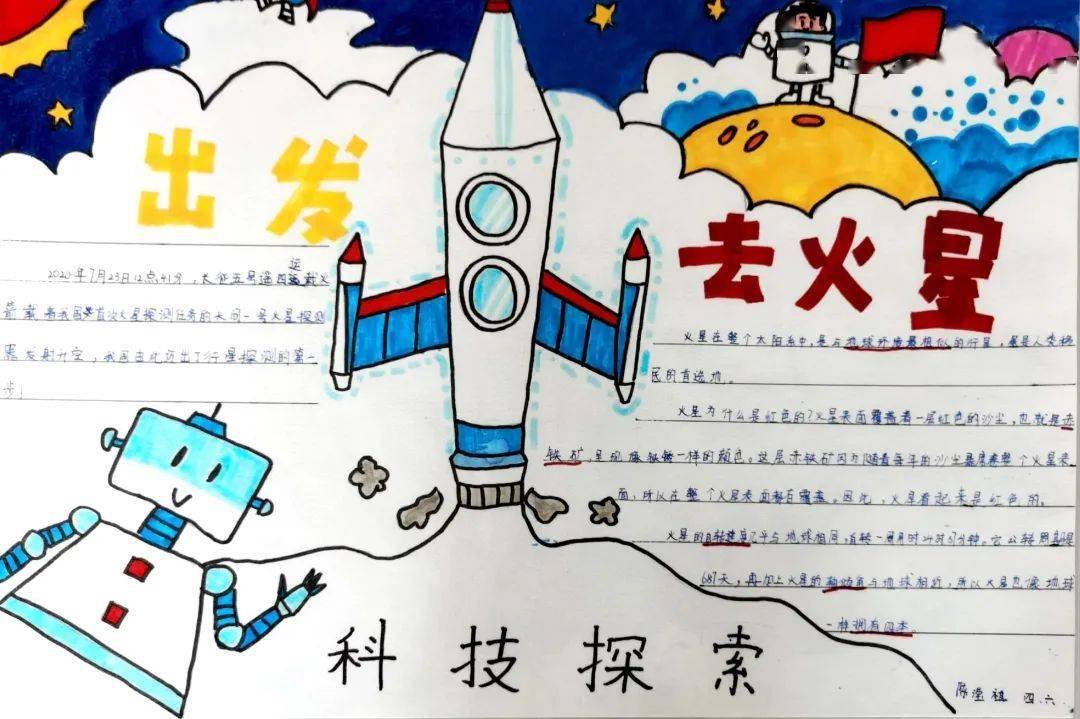 出发
去火星
2020年7月23日12点41分，长征五号遥四运载火
箭载着我国首次火星探测任务的天问一号火星探测
器发射升空，我国由此迈出了行星探测的第一
步！
火星在整个太阳系中，是与地球环境最相似的行星，是人类移
民的首选地。
火星为什么是红色的？火星表面覆盖着一层红色的沙尘，也就是赤
铁矿，呈现像铁锈一样的颜色。这层赤铁矿因为随着每年的沙尘暴席卷整个火星表
面，所以在整个火星表面都有覆盖。因此，火星看起来是红色的。
火星的自转速度几乎与地球相同，自转一周用时24时37分钟。它公转周期是
687天，再加上火星的轴倾角与地球相近，所以火星也像地球
一样拥有四季。
科技探索
陈滢 四.六